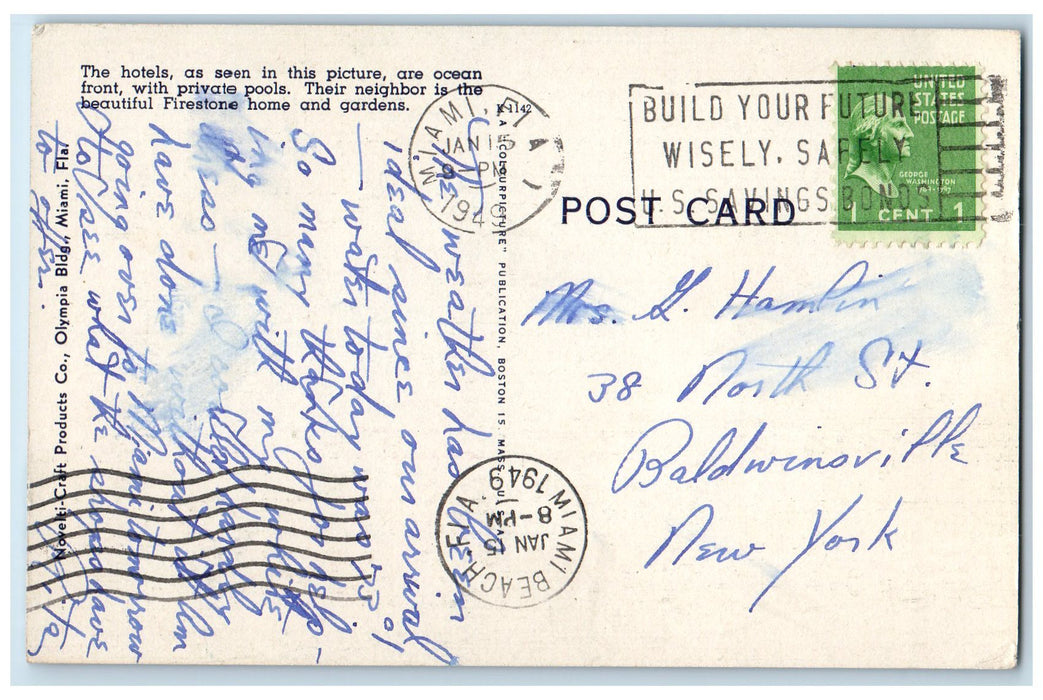 The hotels, as seen in this picture, are ocean
front, with private pools. Their neighbor is the
beautiful Firestone home and gardens.
K-1142
MIAMI, FLA.
JAN 15
PM
1949
BUILD YOUR FUTURE
WISELY, SAFELY
U.S. SAVINGS BONDS
UNITED
STATES
POSTAGE
GEORGE
WASHINGTON
1 CENT 1
POST CARD
Mrs. G. Hamlin
38 North St.
Baldwinsville
New York
The weather has been
ideal since our arrival
— water today was 73°!
So many thanks for help-
ing me with my
have done
going over to Miami tomorrow
to see what the shops have
to offer.
"COLOURPICTURE" PUBLICATION, BOSTON 15, MASS., U.S.A.
Novelti-Craft Products Co., Olympia Bldg., Miami, Fla.
MIAMI BEACH, FLA.
JAN 15
8-PM
1949